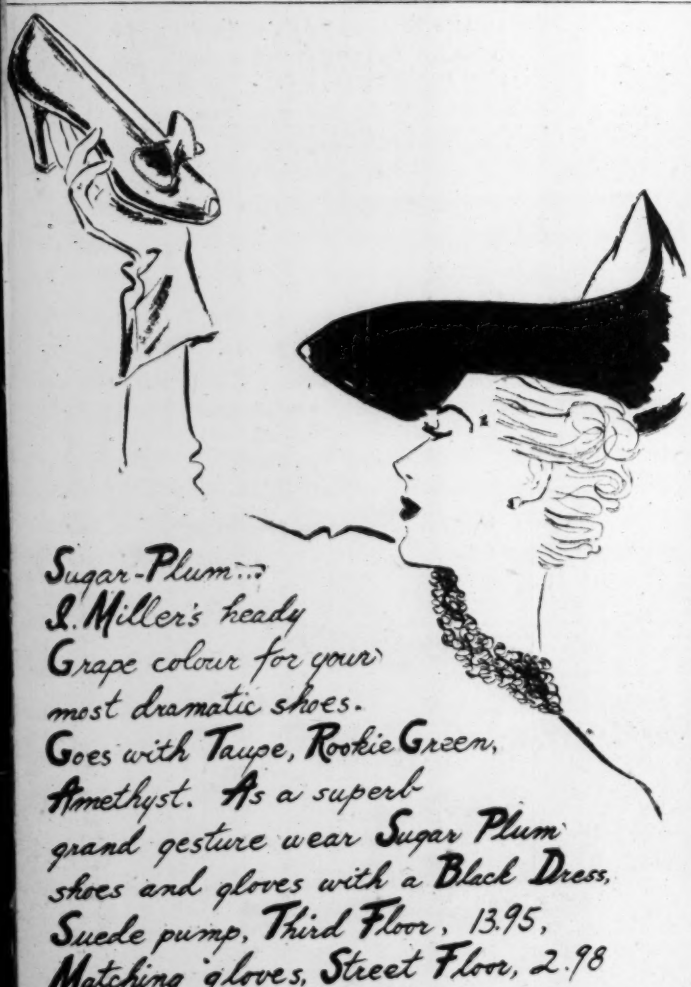 Sugar-Plum...
I. Miller's heady
Grape colour for your
most dramatic shoes.
Goes with Taupe, Rookie Green,
Amethyst. As a superb
grand gesture wear Sugar Plum
shoes and gloves with a Black Dress,
Suede pump, Third Floor, 13.95,
Matching gloves, Street Floor, 2.98